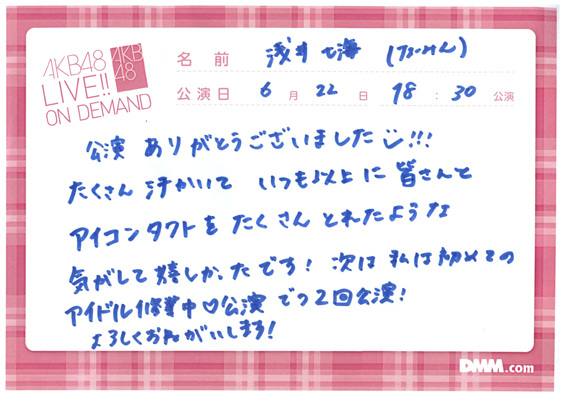 AKB48
LIVE!!
ON DEMAND
AKB
48
名前 浅井七海 (なーみん)
公演日 6月22日 18:30 公演
公演 ありがとうございました!!!
たくさん 汗かいて いつも以上に 皆さんと
アイコンタクトを たくさん とれたような
気がして 嬉しかったです! 次は 私は初めての
アイドル修業中♡公演 での2回公演!
よろしくおねがいします!
DMM.com